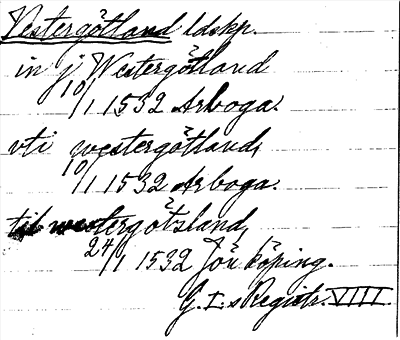 Vestergötland ldskp.
in j Westergötland
10/1 1532 Arboga.
vti westergötland,
10/1 1532 Arboga.
til westergötzland,
24/1 1532 Jön köping.
G. I.s Registr. VIII.